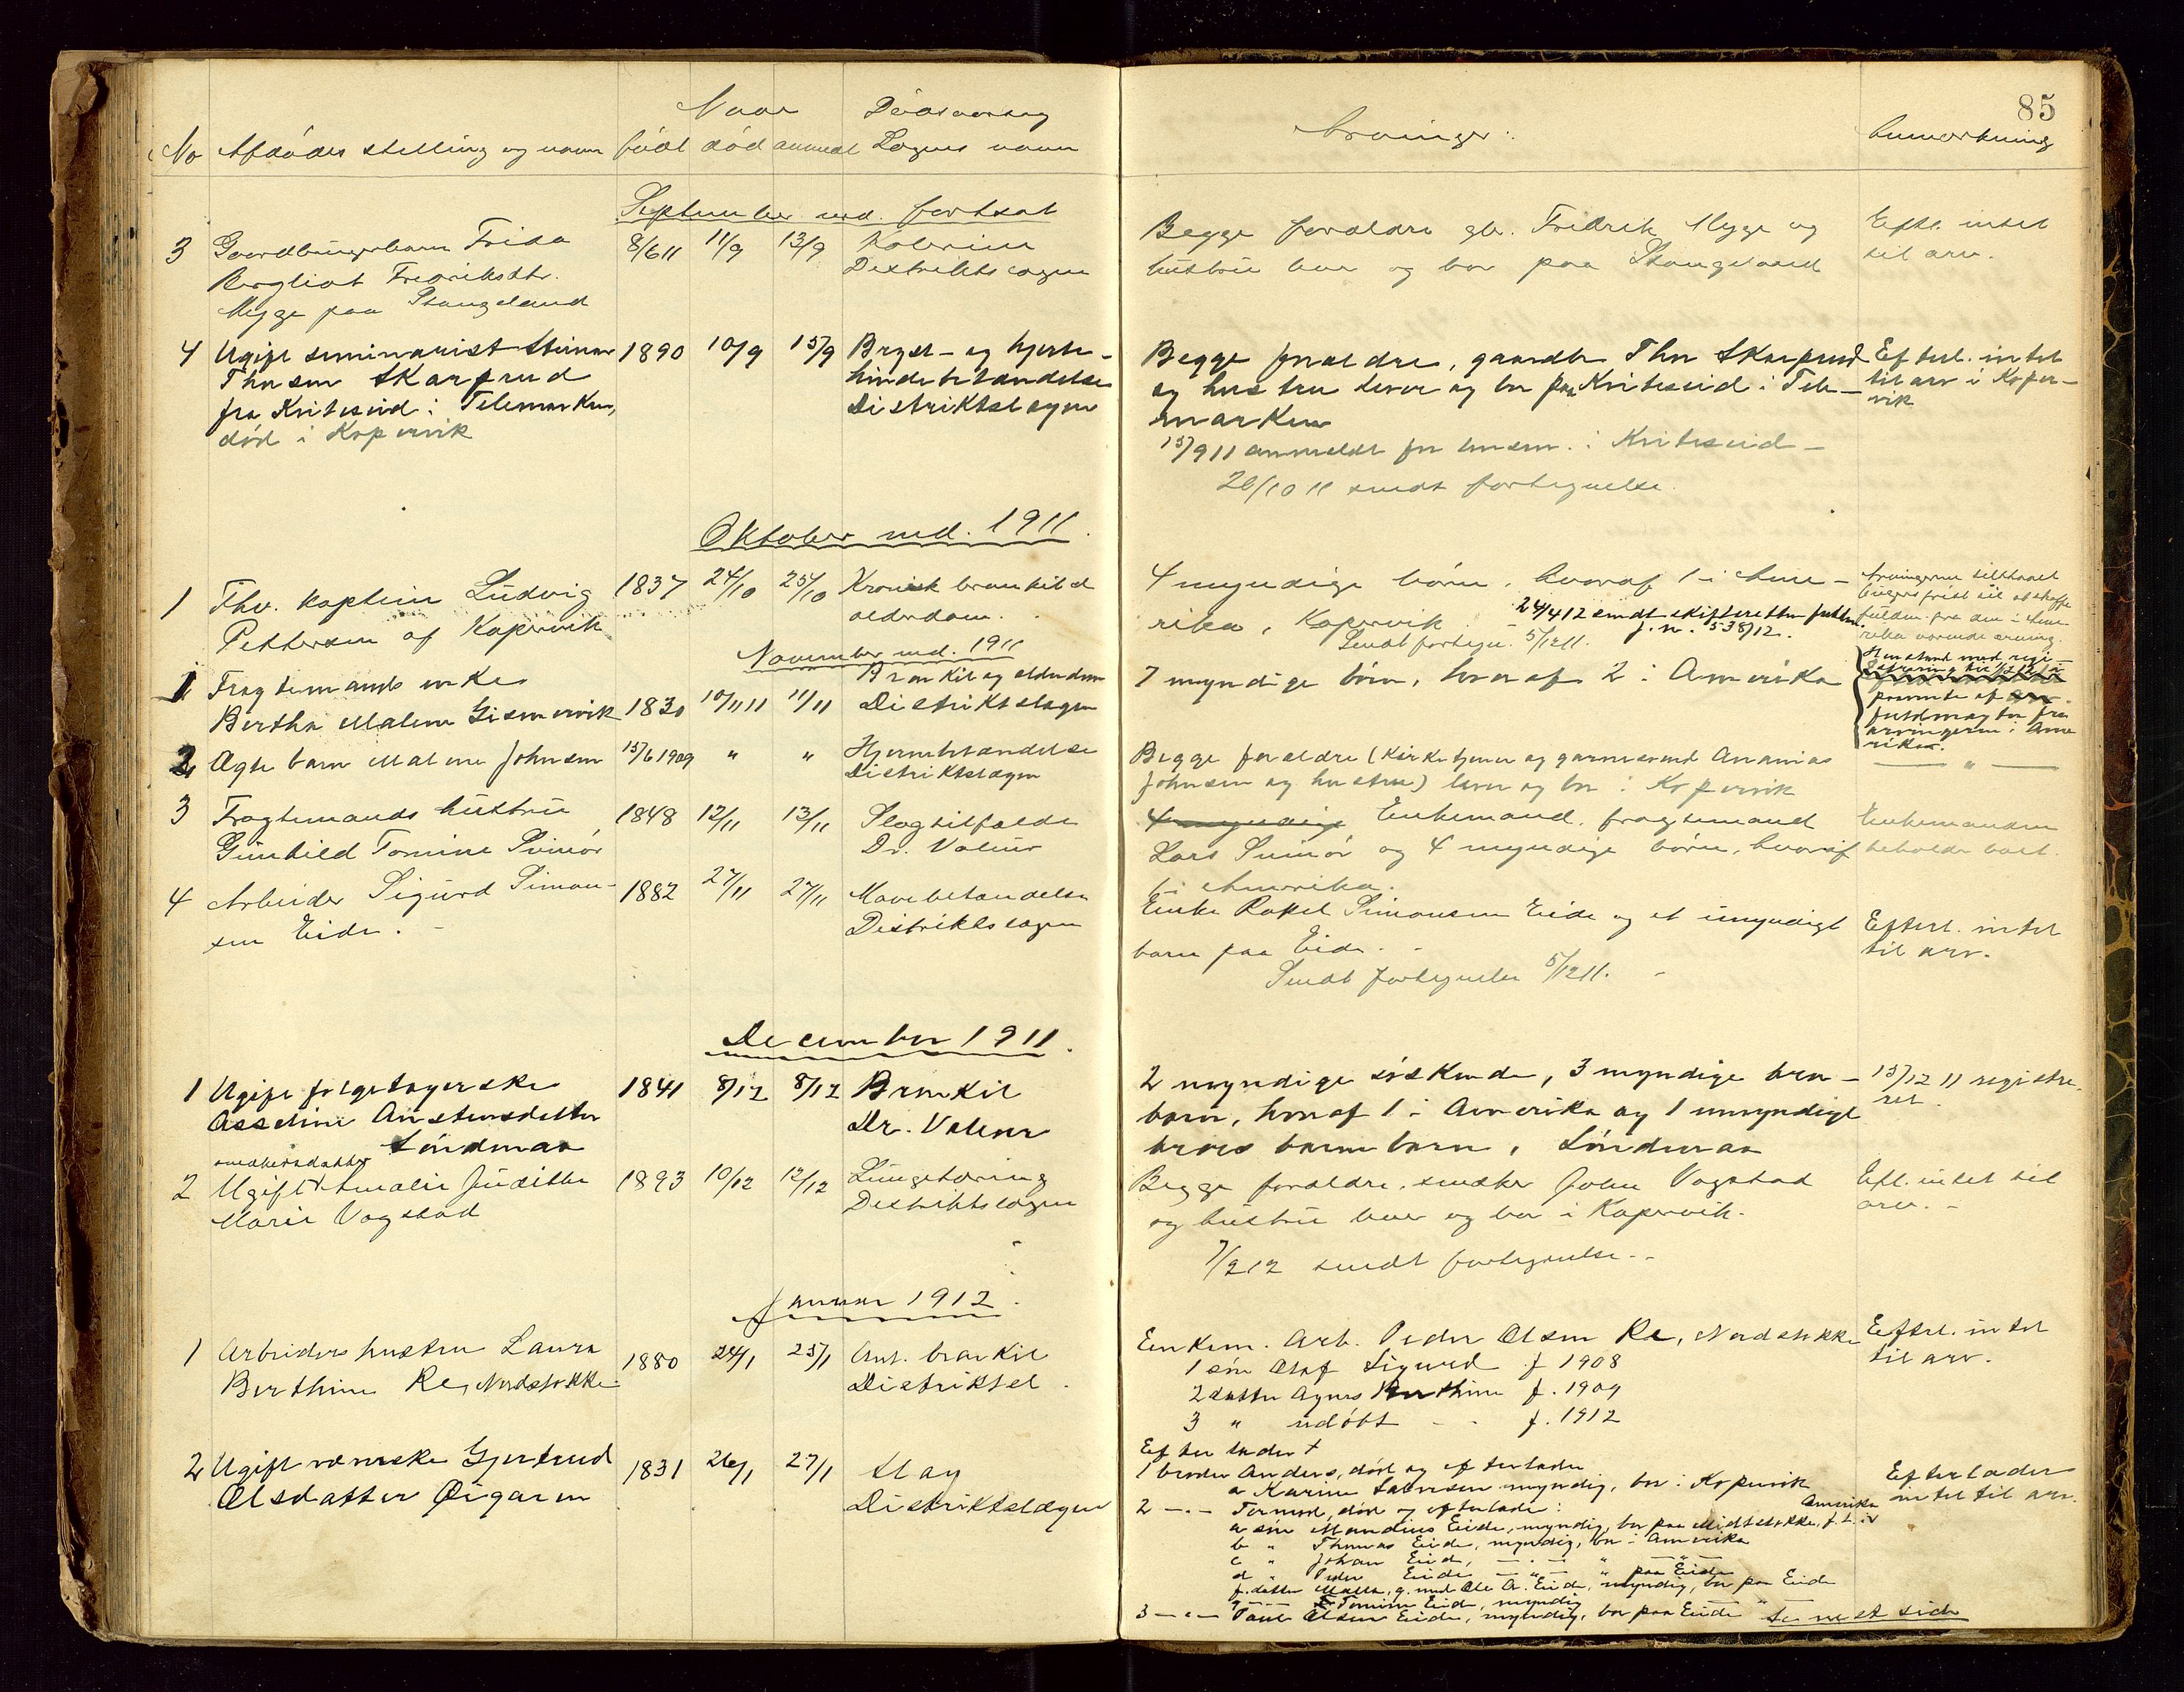 85
Naar Dødsaarsag
No Afdødes stilling og navn født død anmeldt Lægens navn Arvinger: Anmerkning
September md. fortsat
3 Gaardbrugerbarn Frida 8/6 11 11/9 13/9 Kolerine
Bergliot Fredriksdtr. Distriktslægen
Mygge paa Stangeland
Begge forældre gbr. Fredrik Mygge og
hustru lever og bor paa Stangeland
Eftl. intet
til arv.
4 Ugift seminarist Steinar 1890 10/9 15/9 Bryst- og hjerte-
Thorsen Skarprud hindebetændelse
fra Kviteseid i Telemarken, Distriktslægen
død i Kopervik
Begge forældre, gaardbr Thor Skarprud
og hustru lever og bor paa Kviteseid i Tele-
marken
15/9 11 anmeldt for lensm. i Kviteseid -
26/10 11 sendt fortegnelse.
Efterl. intet
til arv i Koper-
vik
Oktober md. 1911.
1 Fhv. kaptein Ludvig 1837 24/10 25/10 Kronisk bronkit &
Pettersen af Kopervik alderdom.
4 myndige børn, hvoraf 1 i Ame-
rika, Kopervik. - 24/4 12 sendt skifteretten fuldm.
j.n. 538/12.
Sendt fortegn. 5/12 11.
Arvingerne tilstaaet
længere frist til at skaffe
fuldm. fra den i Ame-
rika værende arving.
November md. 1911
1 Fragtemands enke Bronkit og alderdom
Bertha Malene Gismervik 1830 10/11 11 11/11 Distriktslægen
7 myndige børn, hvoraf 2 i Amerika
Henstand med regi-
strering til 1/2 12 i
paavente af
fuldmagter fra
arvingerne i Ame
rika.
2 Ægte barn Malene Johnsen 15/6 1909 " " Hjernebetændelse
Distriktslægen
Begge forældre (kirketjener og garnvend Ananias
Johnsen og hustru) lever og bor i Kopervik
— " —
3 Fragtemands hustru 1848 12/11 13/11 Slagtilfælde
Gunhild Tomine Svinør Dr. Valeur
4 myndige Enkemand, fragtemand
Lars Svinør og 4 myndige børn, hvoraf
1 i Amerika.
Enkemanden
beholdt boet.
4 Arbeider Sigurd Simon- 1882 27/11 27/11 Mavebetændelse
sen Eide. - Distriktslægen
Enke Rakel Simonsen Eide og et umyndigt
barn paa Eide. -
Sendt fortegnelse 5/12 11. -
Efterl. intet
til arv.
December 1911.
1 Ugift følgetagerske 1841 8/12 8/12 Bronkit
Asseline Anstensdatter Dr. Valeur
Søndenaa
2 myndige søskende, 3 myndige bro-
børn, hvoraf 1 i Amerika og 1 umyndigt
brors barnebarn, Søndenaa
13/12 11 registre-
ret.
snedkersdatter
2 Ugift Amalie Judithe 1893 10/12 12/12 Lungetæring
Marie Vagstad Distriktslægen
Begge forældre, snedker John Vagstad
og hustru lever og bor i Kopervik.
7/2 12 sendt fortegnelse. -
Eftl. intet til
arv. -
Januar 1912.
1 Arbeiders hustru Laura 1880 24/1 25/1 Ant. bronkit
Berthine Re, Nordstokke Distriktsl.
Enkem. Arb. Peder Olsen Re, Nordstokke
1 søn Olaf Sigurd f 1908
2 datter Agnes Berthine f. 1909
3 " udøbt - - f. 1912
Efterl. intet
til arv.
2 Ugift væverske Gjertrud 1831 26/1 27/1 Slag
Olsdatter Øigaren Distriktslægen
Efterlader
1 broder Anders, død og efterlader
a Karine Salvesen myndig, bor i Kopervik
2 -"- Tormod, død og efterlader: Amerika
a søn Mandius Eide, myndig, bor paa Midtstokke, f. t. i
b " Thomas Eide, myndig, bor i Amerika
c " Johan Eide, -"- " -"-
d " Peder Eide -"- " paa Eide
f. datter Malla, g. med Ole A. Eide, myndig, bor paa Eide
g -"- Tomine Eide, myndig -"-
3 -"- Paul Olsen Eide, myndig, bor paa Eide se næste side
Efterlader
intet til arv.